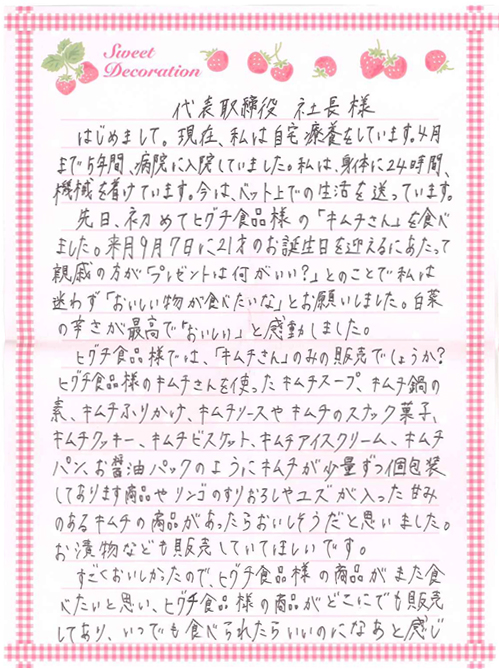 Sweet
Decoration
代表取締役 社長様
はじめまして。現在、私は自宅療養をしています。4月
まで5年間、病院に入院していました。私は、身体に24時間、
機械を着けています。今は、ベット上での生活を送っています。
先日、初めてヒグチ食品様の「キムチさん」を食べ
ました。来月9月7日に21才のお誕生日を迎えるにあたって
親戚の方が「プレゼントは何がいい?」とのことで私は
迷わず「おいしい物が食べたいな」とお願いしました。白菜
の辛さが最高で「おいしい」と感動しました。
ヒグチ食品様では、「キムチさん」のみの販売でしょうか?
ヒグチ食品様のキムチさんを使ったキムチスープ、キムチ鍋の
素、キムチふりかけ、キムチソースやキムチのスナック菓子、
キムチクッキー、キムチビスケット、キムチアイスクリーム、キムチ
パン、お醤油パックのようにキムチが少量ずつ個包装
してあります商品やリンゴのすりおろしやユズが入った甘み
のあるキムチの商品があったらおいしそうだと思いました。
お漬物なども販売していてほしいです。
すごくおいしかったので、ヒグチ食品様の商品がまた食
べたいと思い、ヒグチ食品様の商品がどこにでも販売
してあり、いつでも食べられたらいいのになあと感じ